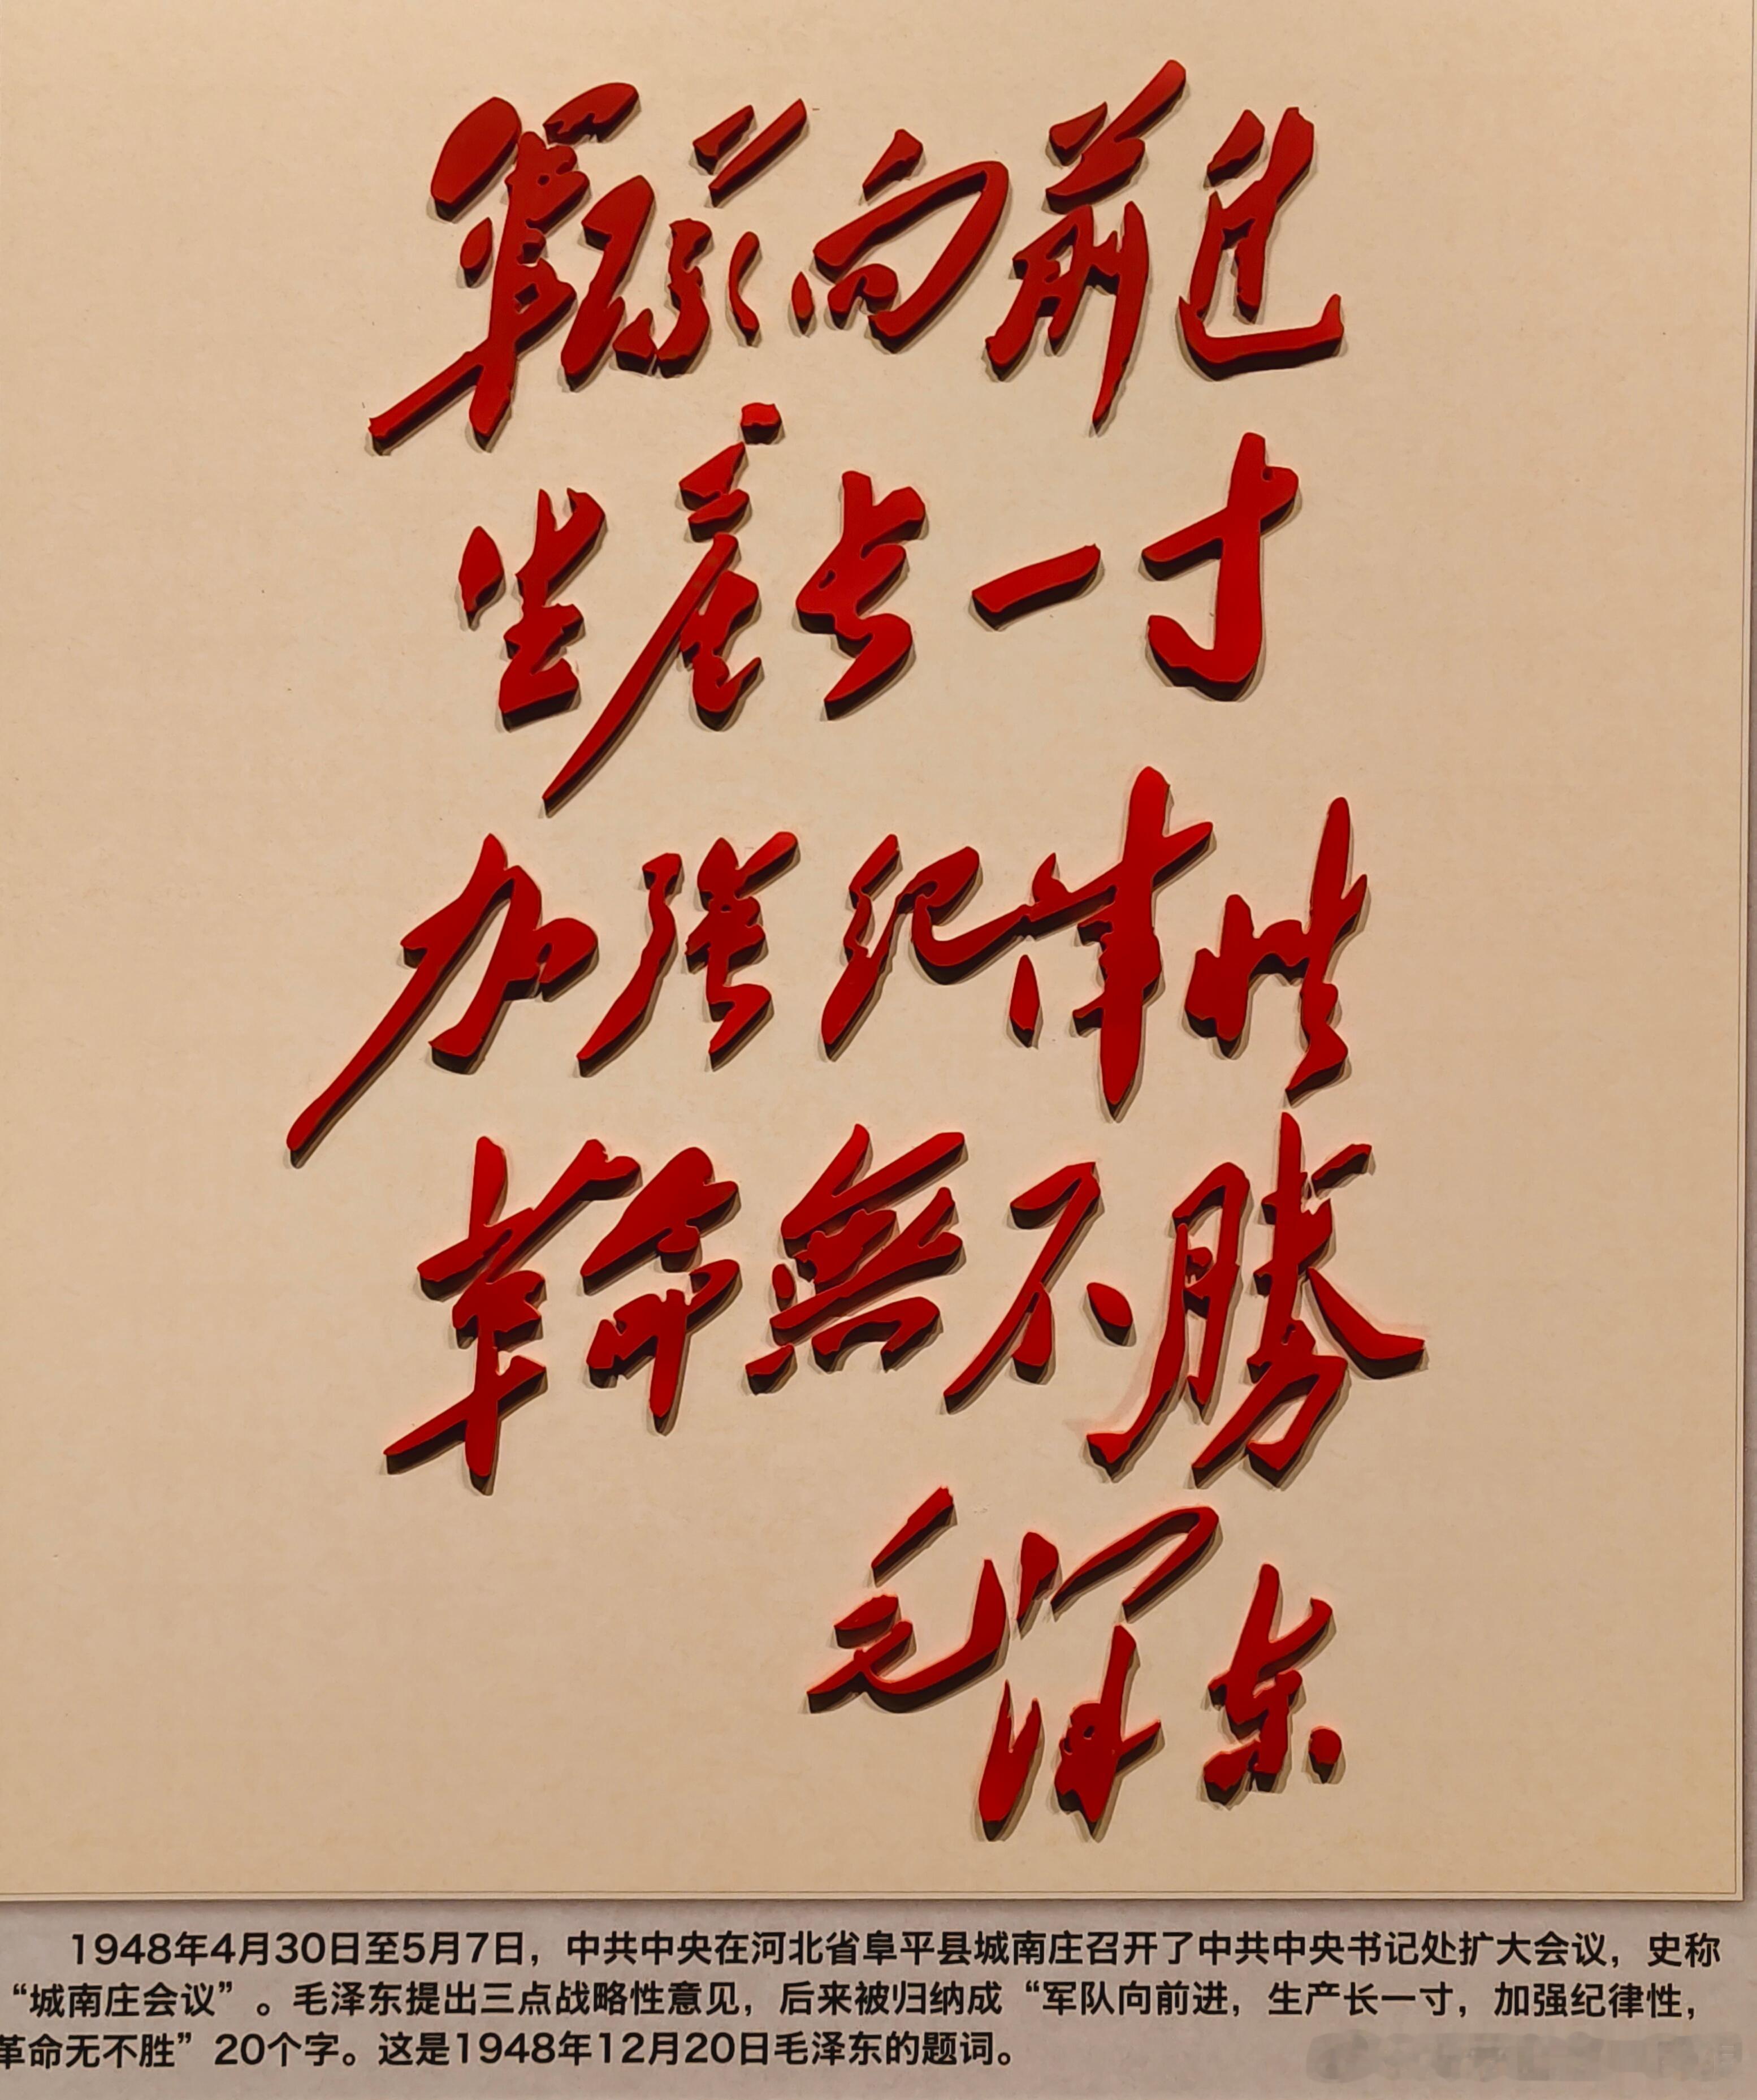 軍隊向前進
生產長一寸
加強紀律性
革命無不勝
毛泽东
1948年4月30日至5月7日，中共中央在河北省阜平县城南庄召开了中共中央书记处扩大会议，史称
“城南庄会议”。毛泽东提出三点战略性意见，后来被归纳成“军队向前进，生产长一寸，加强纪律性，
革命无不胜”20个字。这是1948年12月20日毛泽东的题词。